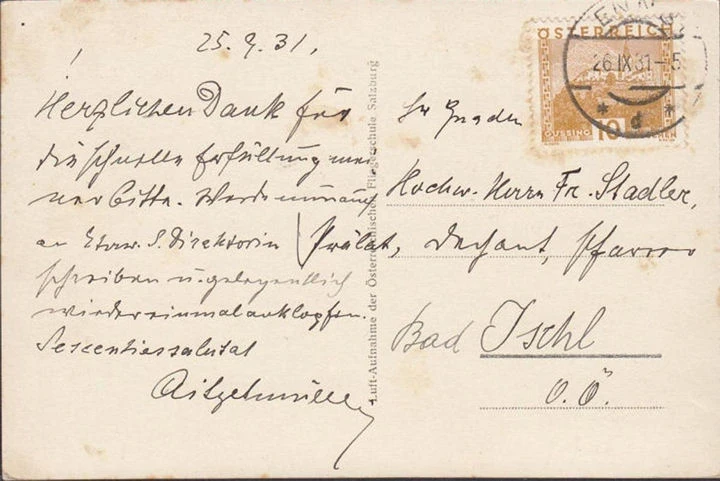 25. 9. 31.
!
Herzlichen Dank für
die schnelle Erfüllung mei
ner Bitte. Werde nun auch
an S. Direktorin
schreiben u. gelegentlich
wieder einmal anklopfen.
Sescenties salutat
Luft-Aufnahme der Österreichischen Fliegerschule Salzburg
ÖSTERREICH
26.IX.31-5
* d *
GÜSSING
10
Sr Gnaden
Hochw. Herrn Fr. Stadler,
Prälat, Dechant, Pfarrer
Bad Ischl
O.Ö.